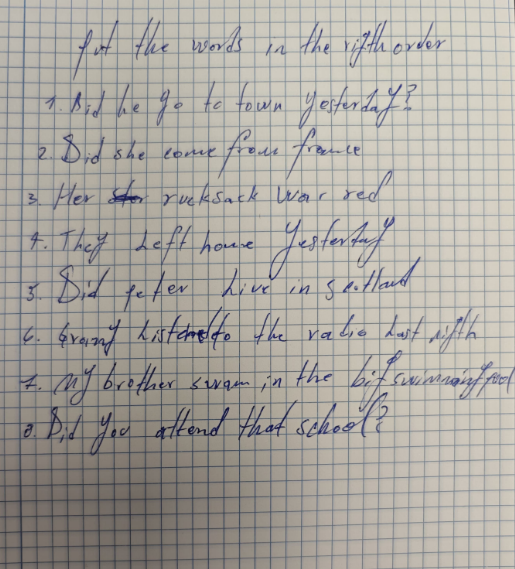 put the words in the rigth order
1. Did he go to town yesterday?
2. Did she come from france
3. Her rucksack was red
4. They Left home yesterday
5. Did peter Live in scotland
6. Granny Listened to the radio Last nigth
7. My brother swam in the big swimming pool
8. Did you attend that school?